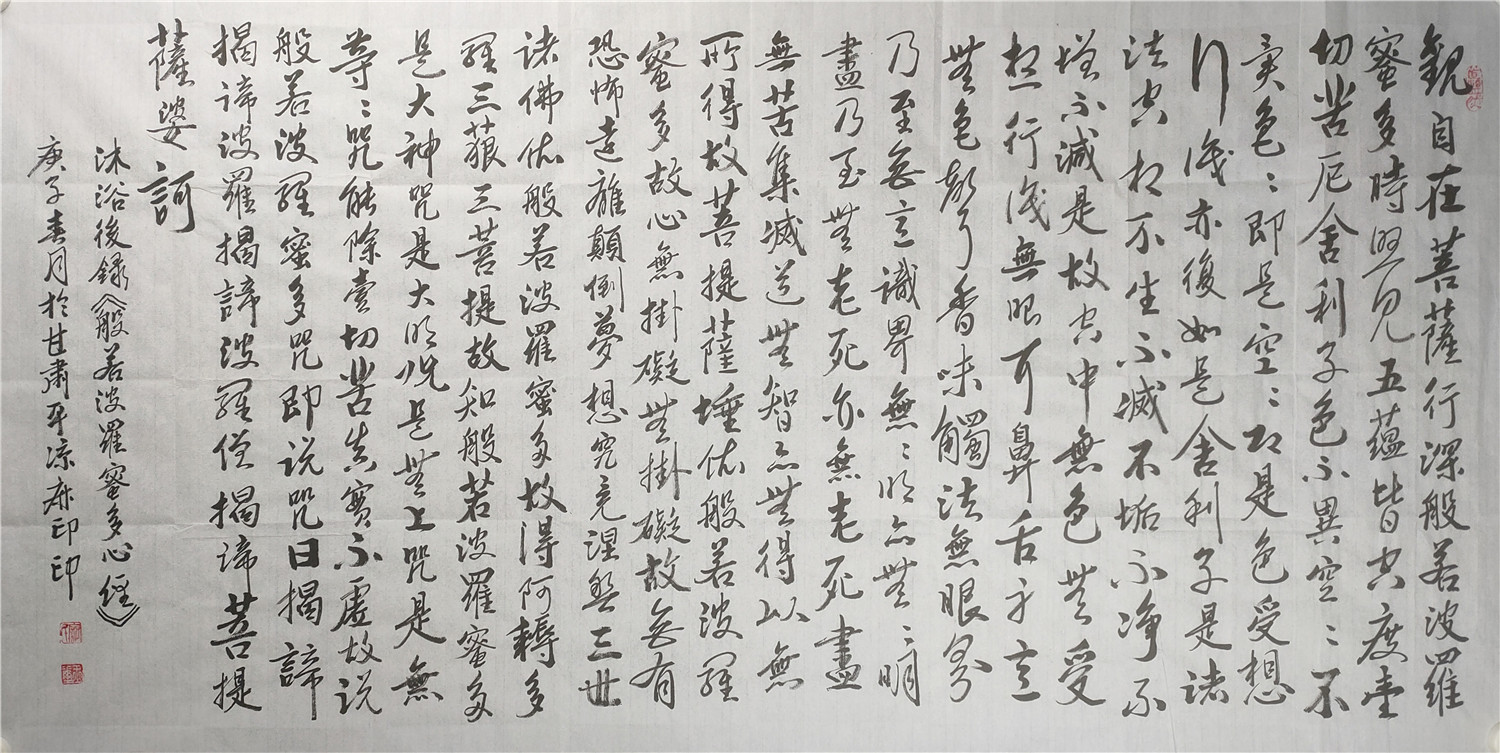 觀自在菩薩行深般若波羅
蜜多時照見五蘊皆空度壹
切苦厄舍利子色不異空々不
異色々即是空々即是色受想
行識亦復如是舍利子是諸
法空相不生不滅不垢不净不
增不減是故空中無色無受
想行識無眼耳鼻舌身意
無色聲香味觸法無眼界
乃至無意識界無々明亦無々明
盡乃至無老死亦無老死盡
無苦集滅道無智亦無得以無
所得故菩提薩埵依般若波羅
蜜多故心無掛礙無掛礙故無有
恐怖遠離顛倒夢想究竟涅槃三世
諸佛依般若波羅蜜多故得阿耨多
羅三藐三菩提故知般若波羅蜜多
是大神咒是大明咒是無上咒是無
等々咒能除壹切苦真實不虛故说
般若波羅蜜多咒即说咒曰揭諦
揭諦波羅揭諦波羅僧揭諦菩提
薩婆訶
沐浴後録《般若波羅蜜多心經》
庚子春月於甘肅平凉印印